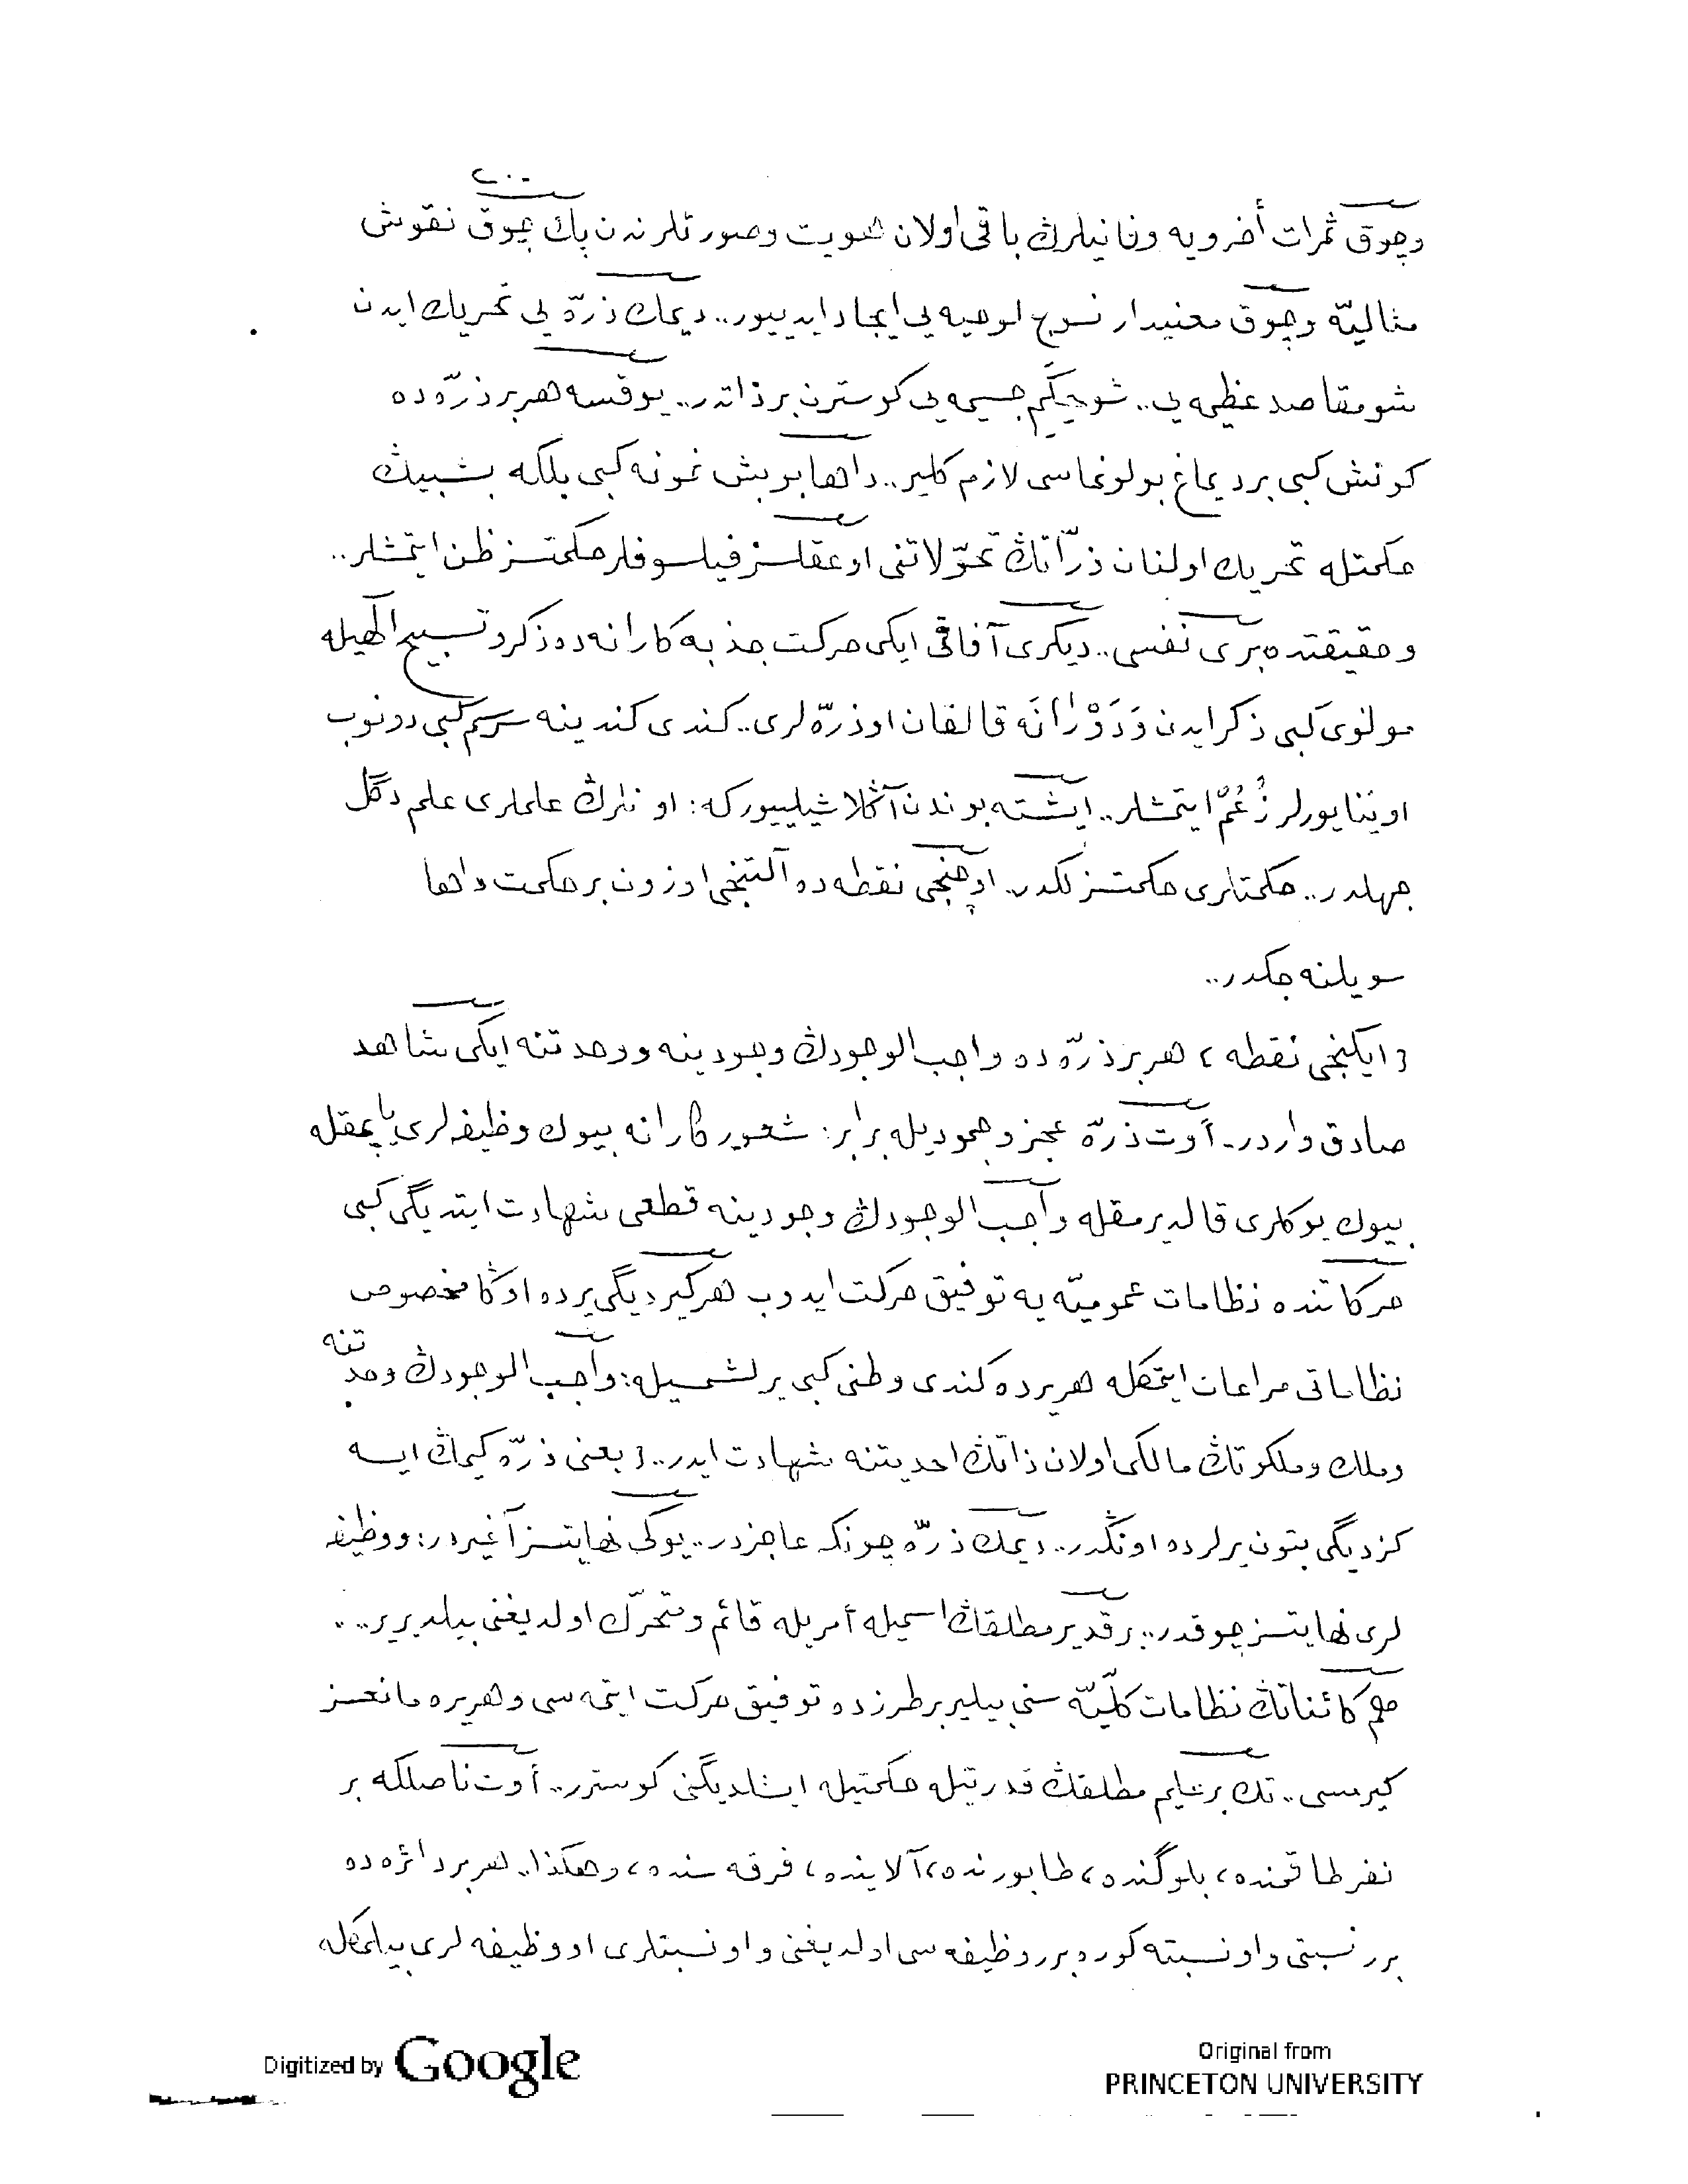 وچوق ثمرات أخرویه وفانیلرڭ باقی اولان هویت وصورتلرندن پك چوق نقوش
مثالیّه وچوق معنیدار نسوج لوحیه یی ایجاد ایدییور.. دیمك ذرّه یی تحریك ایدن
شو مقاصد عظیمه یی.. شو حِكَم جسیمه یی كوسترن بر ذاتدر.. یوقسه هر بر ذرّه ده
كونش كبی بر دیماغ بولونماسی لازم كلیر.. داها بو بش نمونه كبی بلكه بشبیڭ
حكمتله تحریك اولنان ذرّاتڭ تحوّلاتنی او عقلسز فیلسوفلر حكمتسز ظن ایتمشلر..
وحقیقتده بری نفسی.. دیكری آفاقی ایكی حركت جذبه كارانه ده ذكر و تسبیح الٰهیله
مولوی كبی ذكر ایدن وَدَوْرَانَه قالقان او ذرّه لری.. كندی كندینه سرسم كبی دونوب
اوینایورلر زُعُمْ ایتمشلر.. ایشته بوندن آڭلاشیلییوركه: اونلرڭ علملری علم دگل
جهلدر.. حكمتلری حكمتسزلكدر. اوچنجی نقطه ده آلتنجی اوزون بر حكمت داها
سویلنه جكدر..
﴿ ایكنجی نقطه ﴾ هر بر ذرّه ده واجب الوجودڭ وجودینه ووحدتنه ایكی شاهد
صادق واردر. أوت ذرّه عجز و جمودیله برابر: شعوركارانه بیوك وظیفه لری یاپمقله
بیوك یوكلری قالدیرمقله واجب الوجودڭ وجودینه قطعی شهادت ایتدیگی كبی
حركاتنده نظامات عمومیّه یه توفیق حركت ایدوب هر گیردیگی یرده اوڭا مخصوص
نظاماتی مراعات ایتمكله هر یرده كندی وطنی كبی یرلشمسیله: واجب الوجودڭ وحدتنه
وملك وملكوتڭ مالكی اولان ذاتڭ احدیتنه شهادت ایدر.. یعنی ذرّه كیمڭ ایسه
كزدیگی بتون یرلرده اونڭدر.. دیمك ذرّه چونكه عاجزدر.. یوكی نهایتسز آغیردر: ووظیفه
لری نهایتسز چوقدر.. بر قدیر مطلقڭ اسمیله أمریله قائم ومتحرّك اولدیغنی بیلدیریر..
هم كائناتڭ نظامات كلّیّه سنی بیلیر بر طرزده توفیق حركت ایتمه سی وهر یره مانعسز
كیرمسی.. تك بر علیم مطلقڭ قدرتیله حكمتیله ایشلدیگنی كوسترر.. أوت ناصلكه بر
نفر طاقمنده، بلوگنده، طابورنده، آلاینده، فرقه سنده، وهكذا.. هر بر دائره ده
برر نسبتی و او نسبته كوره برر وظیفه سی اولدیغنی و او نسبتلری او وظیفه لری بیلمكله
Digitized by Google
Original from
PRINCETON UNIVERSITY